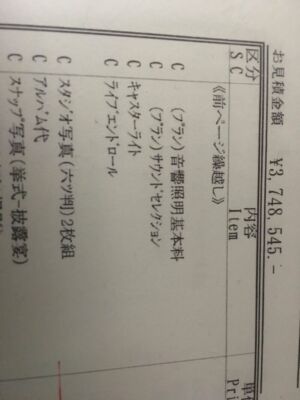 お見積金額 ¥3,748,545.-
区分 内容
SC Item Pri
《前ページ繰越し》
C (プラン)音響照明基本料
C (プラン)サウンドセレクション
C キャスターライト
C ライブエンドロール
C スタジオ写真(六ツ判)2枚組
C アルバム代
C スナップ写真(挙式~披露宴)